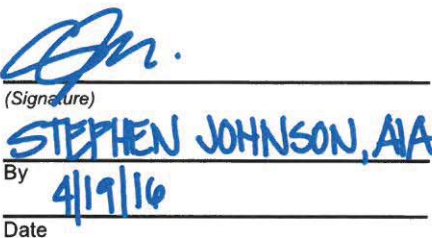 (Signature)
STEPHEN JOHNSON, AIA
By
4/19/16
Date